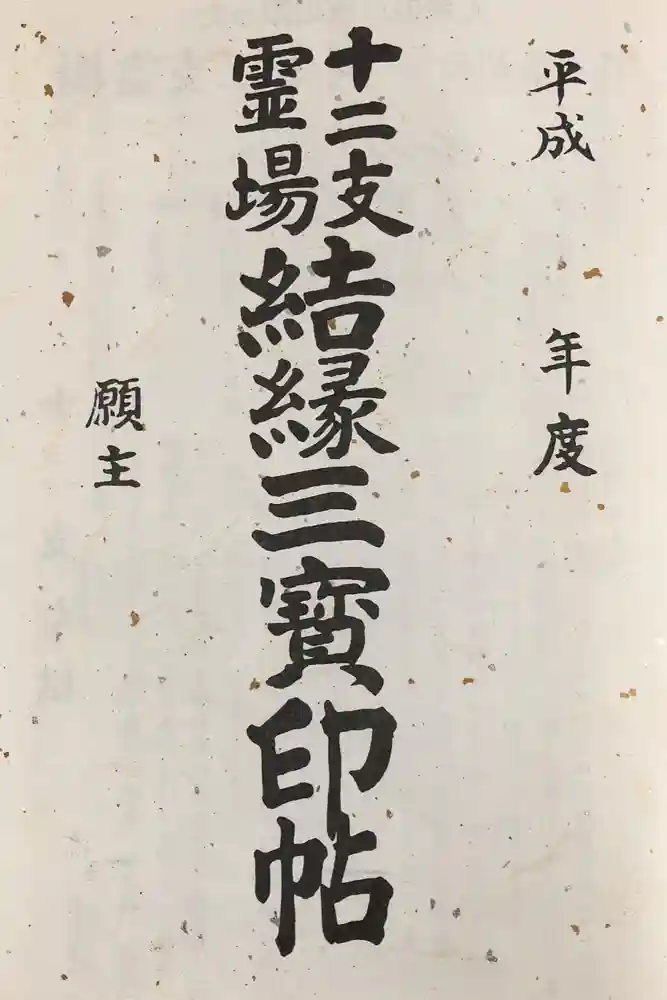 平成 年度
十二支
霊場
結縁三寶印帖
願主